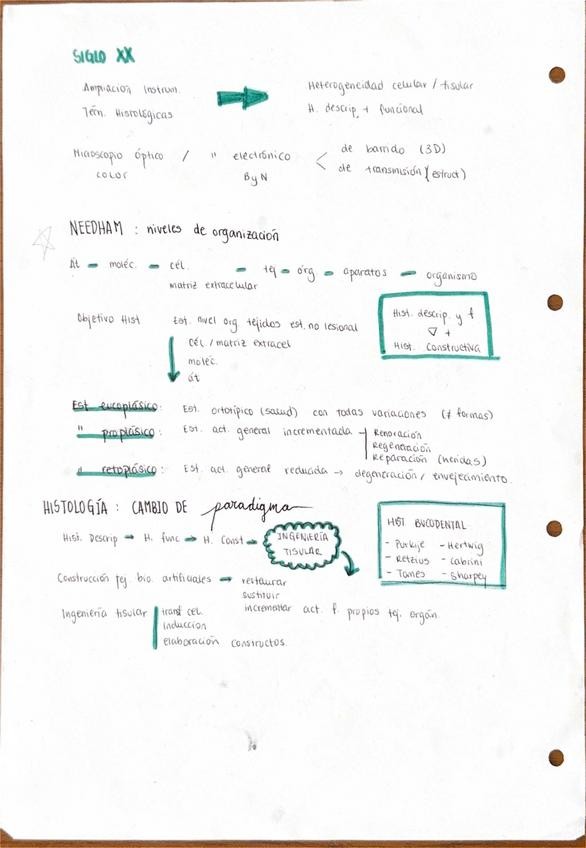 SIGLO XX
Ampliación Instrum. Heterogeneidad celular / tisular
Técn. Histológicas H. descrip. + funcional
Microscopio óptico / " electrónico < de barrido (3D)
color ByN de transmisión (estruct)
NEEDHAM : niveles de organización
At - moléc. - cél. - tej - órg - aparatos - organismo
matriz extracelular
Objetivo Hist Est. nivel org tejidos est. no lesional
cél. / matriz extracel
moléc.
át
Hist. descrip. y f
▽ +
Hist. Constructiva
Est eucoplásico: Est. ortotípico (salud) con todas variaciones (≠ formas)
" proplásico: Est. act. general incrementada
Renovación
Regeneración
Reparación (heridas)
" retroplásico: Est. act. general reducida → degeneración / envejecimiento
HISTOLOGÍA : CAMBIO DE paradigma
Hist. Descrip → H. func → H. Const → INGENIERÍA TISULAR
HIST BUCODENTAL
- Purkije - Hertwig
- Retzius - Cabrini
- Tomes - Sharpey
Construcción tej bio. artificiales → restaurar
sustituir
incrementar act. f. propios tej. orgán.
Ingeniería tisular transf cel.
inducción
elaboración constructos.